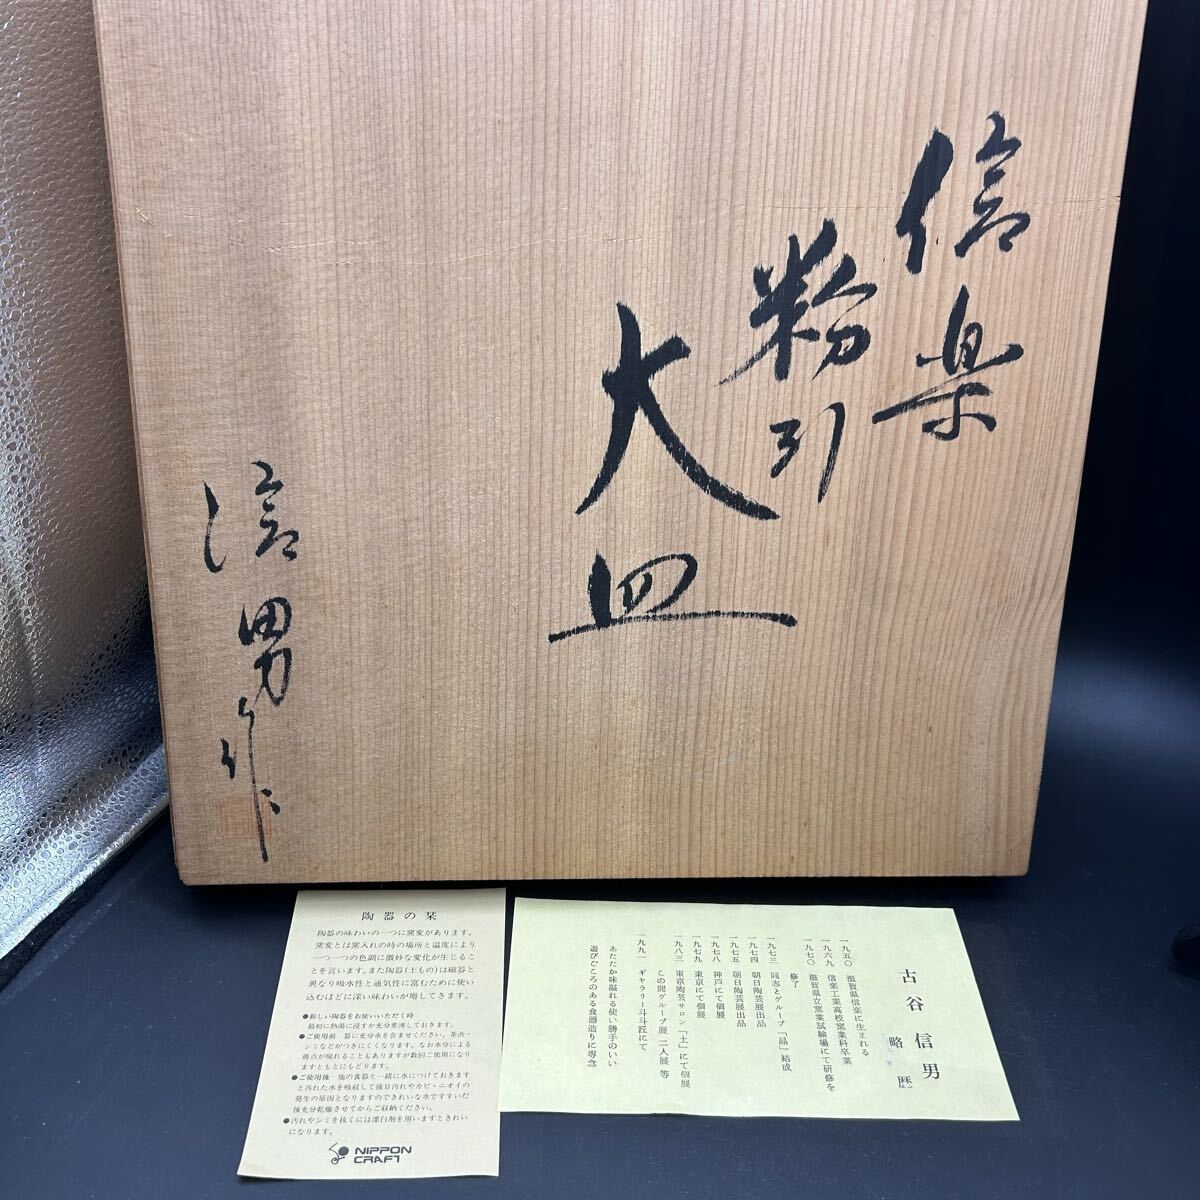 信楽
粉引
大皿
信男作
陶器の栞
陶器の味わいの一つに窯変があります。
窯変とは窯入れの時の場所と温度により
一つ一つの色調に微妙な変化が生じるこ
とを言います。また陶器(土もの)は磁器と
異なり吸水性と通気性に富むために使い
込むほどに深い味わいが増してきます。
●新しい陶器をお使いいただく時
最初に熱湯に浸すか充分煮沸しておきます。
●ご使用前 器に充分水を含ませください。茶渋・
シミなどがつきにくくなります。なお水分による
斑点が現れることもありますが数回ご使用になり
ますともとにもどります。
●ご使用後 他の食器と一緒に水につけておきます
と汚れた水を吸収して後日汚れやカビ・ニオイの
発生の原因となりますのできれいな水ですすいだ
後充分乾燥させてからご収納ください。
●汚れやシミを抜くには漂白剤を用いますときれい
になります。
NIPPON
CRAFT
古谷信男
略歴
一九五〇 滋賀県信楽に生まれる
一九六九 信楽工業高校窯業科卒業
一九七〇 滋賀県立窯業試験場にて研修を
修了
一九七三 同志とグループ「晶」結成
一九七四 朝日陶芸展出品
一九七五 朝日陶芸展出品
一九七八 神戸にて個展
一九七九 東京にて個展
一九八三 東京陶芸サロン「土」にて個展
この間グループ展 二人展 等
一九九一 ギャラリー斗斗匠にて
あたたか味溢れる使い勝手のいい
遊びごころのある食器造りに専念